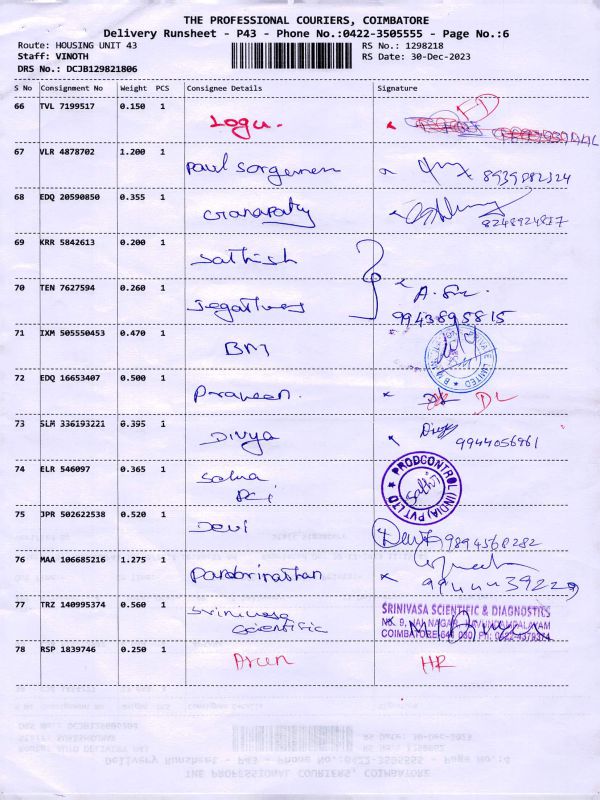 THE PROFESSIONAL COURIERS, COIMBATORE
Delivery Runsheet - P43 - Phone No.:0422-3505555 - Page No.:6
Route: HOUSING UNIT 43 RS No.: 1298218
Staff: VINOTH RS Date: 30-Dec-2023
DRS No.: DCJB129821806
S No Consignment No Weight PCS Consignee Details Signature
66 TVL 7199517 0.150 1 Logu.
67 VLR 4878702 1.200 1 Paul Sorgemen 8939882324
68 EDQ 20590850 0.355 1 Granapathy 8248924817
69 KRR 5842613 0.200 1 Sathish
70 TEN 7627594 0.260 1 Jegatheeswari 9943895815
71 IXM 505550453 0.470 1
72 EDQ 16653407 0.500 1 Praveen. DL
73 SLM 336193221 0.395 1 Divya 9944056961
74 ELR 546097 0.365 1 PRODCONTROL (INDIA) PVT LTD
75 JPR 502622538 0.520 1 Devi Devi 9894568282
76 MAA 106685216 1.275 1
77 TRZ 140995374 0.560 1 Srinivasa Scientific SRINIVASA SCIENTIFIC & DIAGNOSTICS
COIMBATORE
78 RSP 1839746 0.250 1 Arun HR